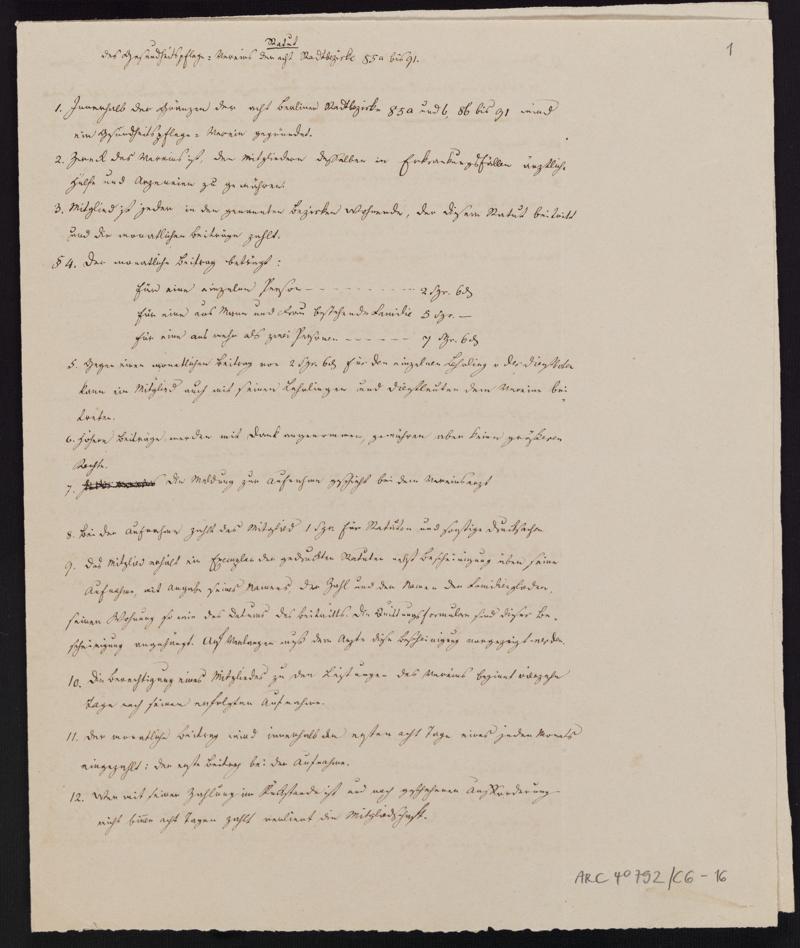 1
Statut
des Gesundheitspflege-Vereins der acht Stadtbezirke 85a bis 91.
1. Innerhalb der Gränzen der acht Berliner Stadtbezirke 85a und b, 86 bis 91 wird
ein Gesundheitspflege-Verein gegründet.
2. Zweck des Vereins ist, den Mitgliedern desselben in Erkrankungsfällen ärztliche
Hülfe und Arzeneien zu gewähren.
3. Mitglied ist jeder in den genannten Bezirken Wohnende, der diesem Statut beitritt
und die monatlichen Beiträge zahlt.
§ 4. Der monatliche Beitrag beträgt:
Für eine einzelne Person - - - - - - - - - 2 Sgr. 6 d
Für eine aus Mann und Frau bestehende Familie 5 Sgr. —
Für eine aus mehr als zwei Personen - - - - - - 7 Sgr. 6 d
5. Gegen einen monatlichen Beitrag von 2 Sgr. 6 d für den einzelnen Lehrling o. der Dienstboten
kann ein Mitglied auch mit seinen Lehrlingen und Dienstleuten dem Vereine bei
treten.
6. Höhere Beiträge werden mit Dank angenommen, gewähren aber keine größeren
Rechte.
7. Die Meldung zur Aufnahme geschieht bei dem Vereinsarzt
8. Bei der Aufnahme zahlt das Mitglied 1 Sgr. für Statuten und sonstige Drucksachen
9. Das Mitglied erhält ein Exemplar der gedruckten Statuten nebst Bescheinigung über seine
Aufnahme, mit Angabe seines Namens, der Zahl und der Namen der Familienglieder,
seiner Wohnung so wie des Datums des Beitritts. Die Quittungsformulare sind dieser Be-
scheinigung angehängt. Auf Verlangen muß dem Arzte diese Bescheinigung vorgezeigt werden.
10. Die Berechtigung eines Mitgliedes zu den Leistungen des Vereins beginnt vierzehn
Tage nach seiner erfolgten Aufnahme.
11. Der monatliche Beitrag wird innerhalb der ersten acht Tage eines jeden Monats
eingezahlt; der erste Beitrag bei der Aufnahme.
12. Wer mit seiner Zahlung im Rückstande ist und nach geschehener Aufforderung
nicht binnen acht Tagen zahlt verliert die Mitgliedschaft.
ARC 4° 792/C6 - 16